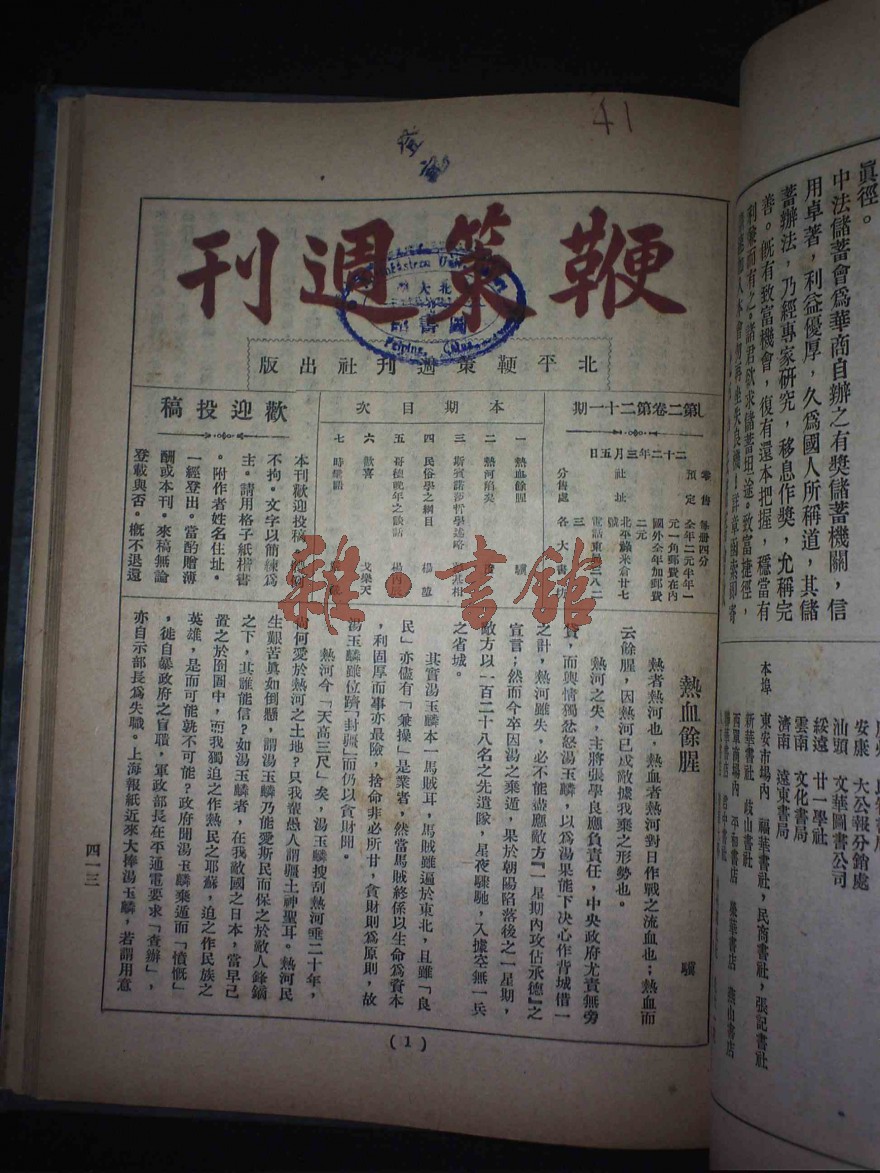 41
登記
鞭策週刊
北平鞭策週刊社出版
第二卷第二十一期
二十二年三月五日
零售 每册四分
預定 全年二元半年一
元一角郵費在內
國外全年加郵費
二元
社址 北平綠米倉廿七
號
分售處 各大書坊
本期目次
一 熱血餘腥 驥
二 熱河陷矣
三 斯賓諾莎哲學述略
四 民俗學之綱目 楊堃
五 哥德晚年之談話 楊丙辰
六 歡喜 戈樂天
七 時樂語
歡迎投稿
本刊歡迎投稿
不拘。文字以簡練爲
主。請用格子紙楷書
。附作者姓名住址。
一經登出。當酌贈薄
酬或本刊。來稿無論
登載與否。概不退還
熱血餘腥 驥
熱者熱河也，熱血者熱河對日作戰之流血也；熱血而
云餘腥，因熱河已成敵據我棄之形勢也。
熱河之失，主將張學良應負責任，中央政府尤責無旁
貸，而輿情獨忿怒湯玉麟，以爲湯果能下决心作背城借一
之計，熱河雖失，必不能盡應敵方『一星期內攻佔承德』之
宣言；然而今卒因湯之棄遁，果於朝陽陷落後之一星期，
敵方以一百二十八名之先遣隊，星夜驟馳，入據空無一兵
之省城。
其實湯玉麟本一馬賊耳，馬賊雖遍於東北，且雖「良
民」亦儘有「兼操」是業者，然當馬賊終係以生命爲資本
，利固厚而事亦最險，捨命非必所甘，貪財則爲原則，故
湯玉麟雖位躋「封疆」而仍以貪財聞。
熱河今「天高三尺」矣，湯玉麟搜刮熱河垂二十年，
何愛於熱河之土地？只我輩愚人謂疆土神聖耳。熱河民
生艱苦眞如倒懸，謂湯玉麟乃能愛斯民而保之於敵人鋒鏑
之下，其誰能信？如湯玉麟者，在我敵國之日本，當早已
置之於囹圄中，而我獨迫之作熱民之耶蘇，迫之作民族之
英雄，是而可能孰不可能？政府聞湯玉麟棄遁而「憤慨」
，徒自暴政府之盲聵，軍政部長在平通電要求「查辦」，
亦自示部長爲失職。上海報紙近來大捧湯玉麟，若謂用意
四一三
(1)
雜·書館
眞徑。
中法儲蓄會爲華商自辦之有獎儲蓄機關，信
用卓著，利益優厚，久爲國人所稱道，其儲
蓄辦法，乃經專家研究，移息作獎，允稱完
善。旣有致富機會，復有還本把握，穩當有
利兼而有之。諸君欲求儲蓄坦途。致富捷徑，
安康 大公報分銷處
汕頭 文華圖書公司
綏遠 廿一學社
雲南 文化書局
濟南 遠東書局
本埠 東安市場內 福華書社，民商書社，張記書社
新華書社 歧山書社
西單商場內 平和書店